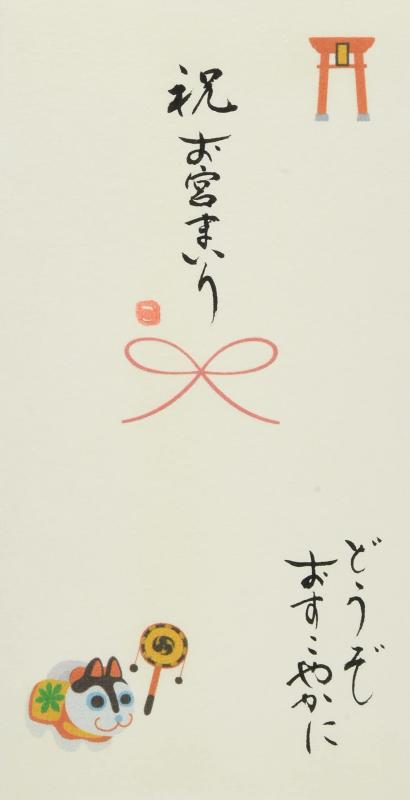 祝
お宮まいり
どうぞ
おすこやかに